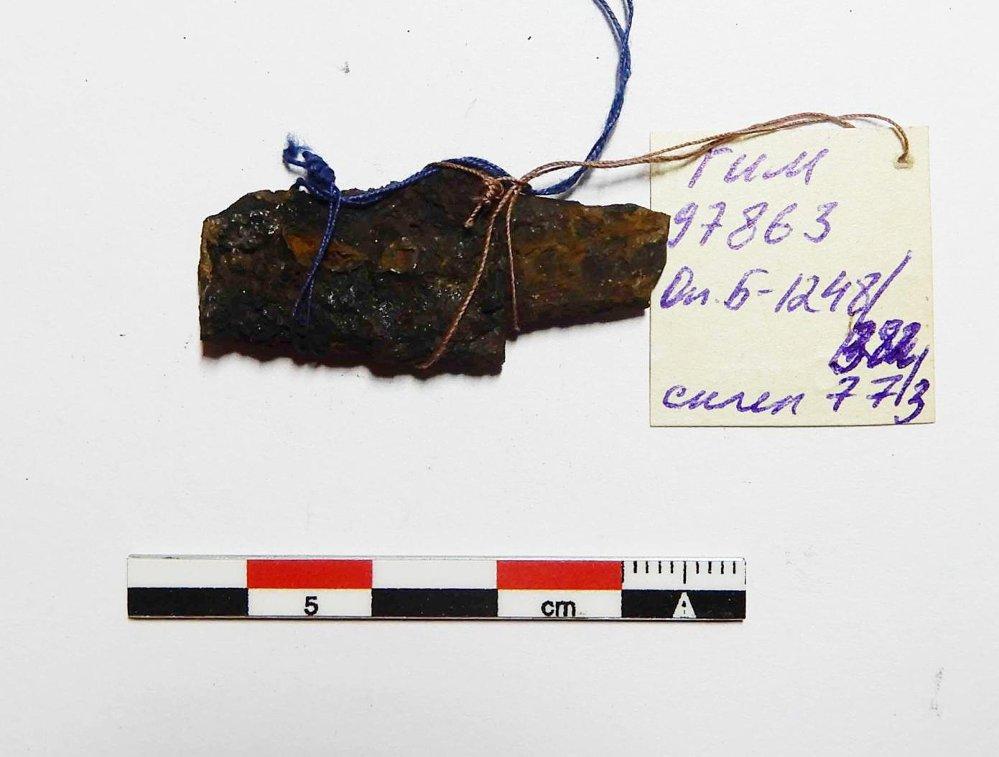 ГИМ
97863
Оп. Б-1248/
382
силеп 77/3
5 cm
A